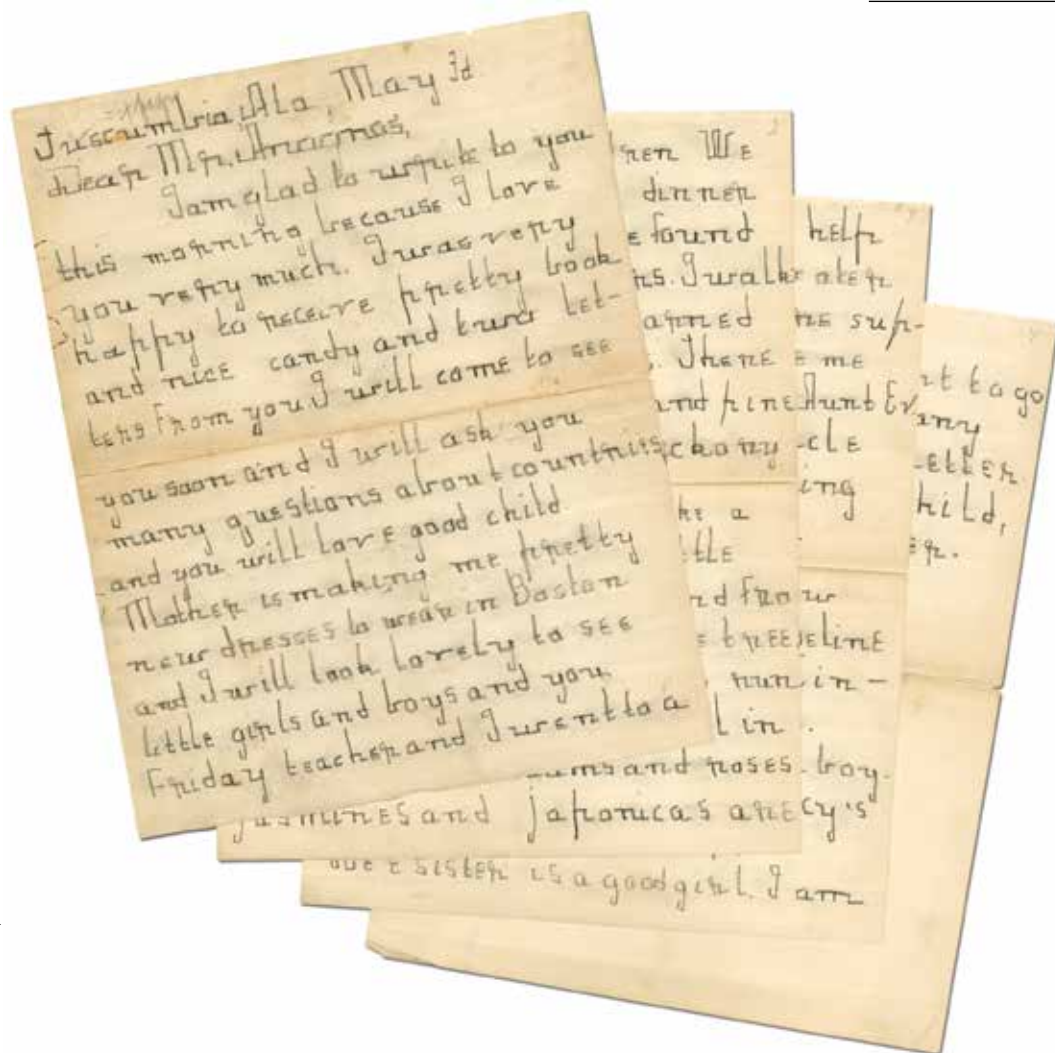 Tuscumbia, Ala, May 3d
Dear Mr. Anagnos,
I am glad to write to you
this morning because I love
you very much. I was very
happy to receive pretty book
and nice candy and two let-
ters from you. I will come to see
you soon and I will ask you
many questions about countries
and you will love good child.
Mother is making me pretty
new dresses to wear in Boston
and I will look lovely to see
little girls and boys and you.
Friday teacher and I went to a
We
dinner
found
rs. I walk
arned
. There
and pine
ckory
ke a
ttle
nd from
tree
run
l in
ums and roses.
jasmines and japonicas are
help
ater
me sup-
me
Aunt Ev
cle
ing
eline
in-
boy.
cy's
sister is a good girl. I am
nt to go
any
etter
hild,
er.